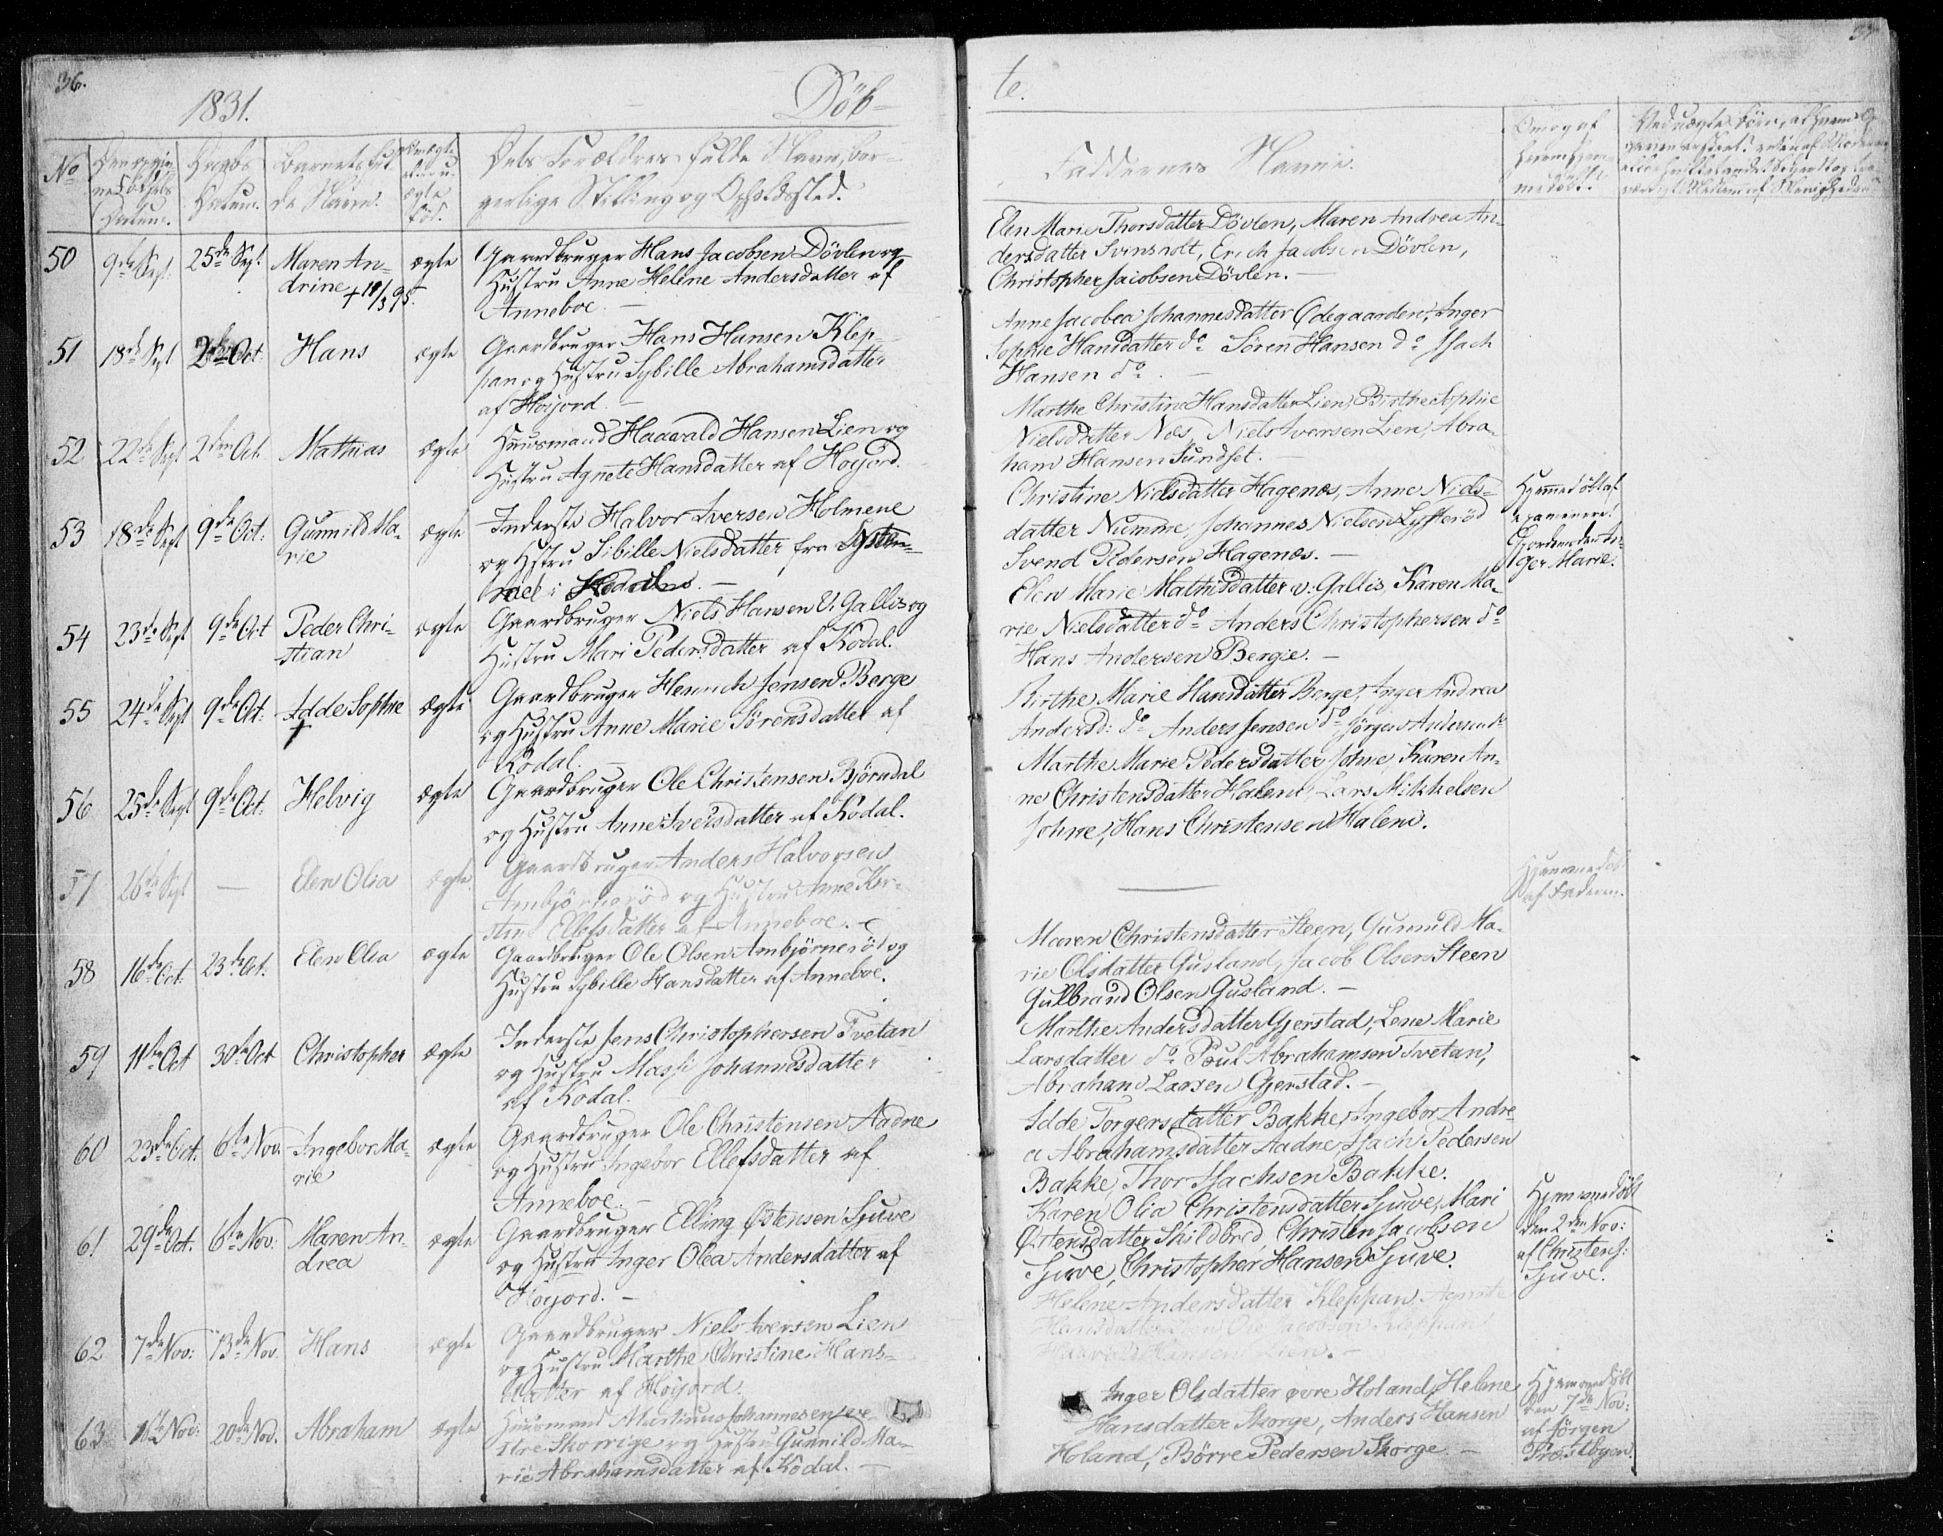 36.
1831. Döb-
No
Barnets ful-
de Navn.
Dets Forældres fulde Navn, bor-
gerlige Stilling og Opholdssted.
50 9de Sept. 25de Sept. Maren An-
drine + 10/3 95. ægte Gaardbruger Hans Jacobsen Dövlen og
Hustru Anne Helene Andersdatter af
Anneboe. –
51 18de Sept 2den Oct. Hans ægte Gaardbruger Hans Hansen Klep-
pan og Hustru Sybille Abrahamsdatter
af Höijord. –
52 22de Sept 2den Oct. Mathias ægte Huusmand Haavald Hansen Lien og
Hustru Agnete Hansdatter af Höijord.
53 18de Sept 9de Oct. Gunnild Ma-
rie ægte Inderste Halvor Iversen Holmene
og Hstru Sibille Nielsdatter fra
i
54 23de Sept 9de Oct Peder Chri-
stian ægte Gaardbruger Niels Hansen V. Gallis og
Hustru Mari Pedersdatter af Kodal.
55 24de Sept 9de Oct. Idde Sophie
+ ægte Gaardbruger Henrich Jensen Berge
og Hustru Anne Marie Sörensdatter af
Kodal. –
56 25de Sept 9de Oct. Helvig ægte Gaardbruger Ole Christensen Björndal
og Hustru Anne Iversdatter af Kodal.
57 26de Sept — Elen Olia ægte Gaardbruger Anders Halvorsen
Ambjörneröd og Hustru Anne Kir-
stine Ellefsdatter af Anneboe. –
58 16de Oct. 23de Oct. Elen Olia ægte Gaardbruger Ole Olsen Ambjörneröd og
Hustru Sybille Hansdatter af Anneboe.
59 11te Oct 30te Oct Christopher ægte Inderste Jens Christophersen Tvetan
og Hustru Massi Johannesdatter
af Kodal.
60 23de Oct. 6te Nov. Ingebor Ma-
rie ægte Gaardbruger Ole Christensen Aadne
og Hustru Ingebor Ellefsdatter af
Anneboe. –
61 29de Oct. 6te Nov: Maren An-
drea ægte Gaardbruger Elling Östensen Sjuve
og Hustru Inger Olea Andersdatter af
Höijord. –
62 7de Nov: 13de Nov. Hans ægte Gaardbruger Niels Iversen Lien
og Hustru Marthe Christine Hans-
datter af Höijord.
63 Nov: 20de Nov. Abraham ægte Huusmand Martinus Johannesen
og Hustru Gunnild Ma-
rie Abrahamsdatter af Kodal. –
te.
Faddernes Navne.
Elen Marie Thorsdatter Dövlen, Maren Andrea An-
dersdatter Svinsholt, Erich Jacobsen Dövlen,
Christopher Jacobsen Dövlen. –
Anne Jacobea Johannesdatter Ödegaarden, Inger
Sophie Hansdatter do Sören Hansen do Isach
Hansen do. –
Marthe Christine Hansdatter Lien, Birthe Sophie
Nielsdatter Næs, Niels Iversen Lien, Abra-
ham Hansen Sundset. –
Christine Nielsdatter Hagenæs, Anne Niels-
datter Numme, Johannes Nielsen Lysteröd
Svend Pedersen Hagenæs. –
Hjemmedöbt af
Marie.
Elen Marie Mathisdatter v: Gallis, Karen Ma-
rie Nielsdatter do Anders Christophersen do
Hans Andersen Bergie. –
Birthe Marie Hansdatter Berge, Inger Andrea
Andersd: do Anders Jensen do Jörgen Andersen do
Marthe Marie Pedersdatter Johne, Karen An-
ne Christensdatter Haleni, Lars Mikkelsen
Johne, Hans Christensen Haleni.
—
Hjemmedöbt
af Faderen.
Maren Christensdatter Steen, Gunnild Ma-
rie Olsdatter Gusland, Jacob Olsen Steen
Gulbrand Olsen Gusland. –
Marthe Andersdatter Gjerstad, Lene Marie
Larsdatter do Poul Abrahamsen Tvetan,
Abraham Larsen Gjerstad. –
Idde Torgersdatter Bakke, Ingebor Andre-
a Abrahamsdatter Aadne, Isach Pedersen
Bakke, Thor Isachsen Bakke.
Karen Olia Christensdatter Sjuve, Mari
Östensdatter Skildbred, Christen Jacobsen
Sjuve, Christopher Hansen Sjuve.
Hjemmedöbt
den 2den Nov:
af Christen J:
Sjuve.
Helene Andersdatter Kleppan, Agnete
Hansdatter Lien, Ole Jacobsen Kleppan
Haavald Hansen Lien. –
Inger Olsdatter övre Holand, Helene
Hansdatter Skorge, Anders Hansen
Holand, Börre Pedersen Skorge –
Hjemmedöbt
den 7de Nov:
af Jörgen
Præstbyen.